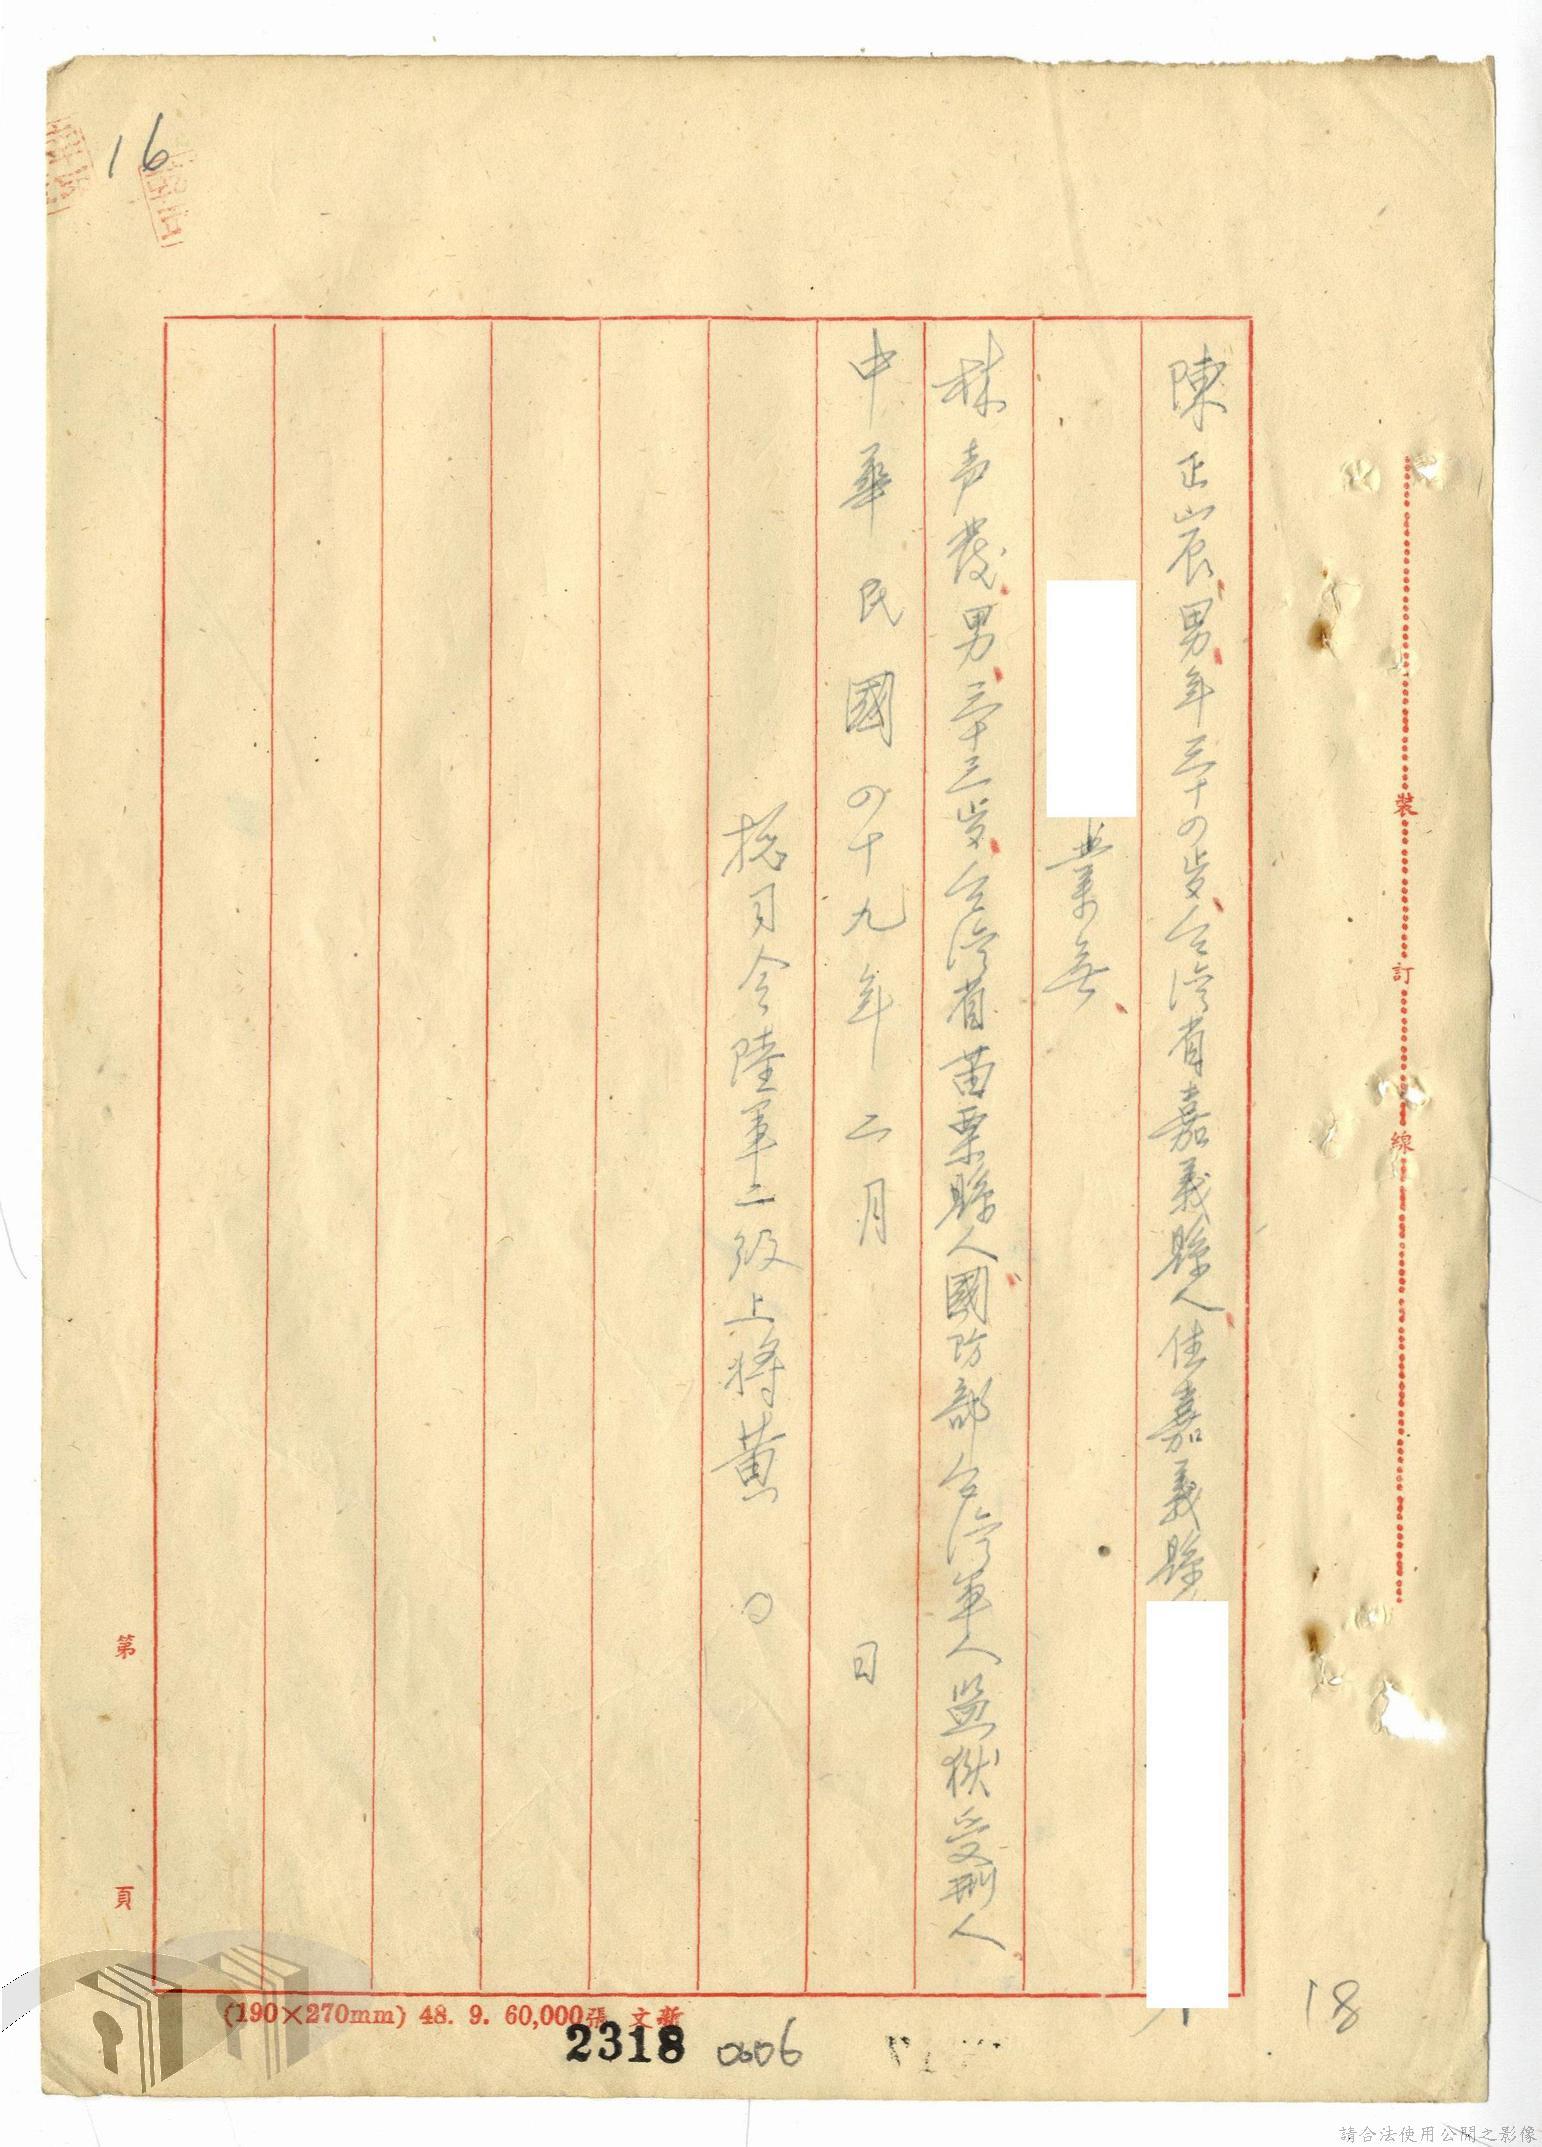 16
陳正宸男年三十四歲台湾省嘉義縣人住嘉義縣
業無
林声發男三十三歲台湾省苗栗縣人國防部台湾軍人監獄受刑人
中華民國四十九年二月 日
總司令陸軍二級上將黃 ○
裝 訂 線
第 頁
(190×270mm) 48. 9. 60,000張 文新
2318 0606
18
請合法使用公開之影像